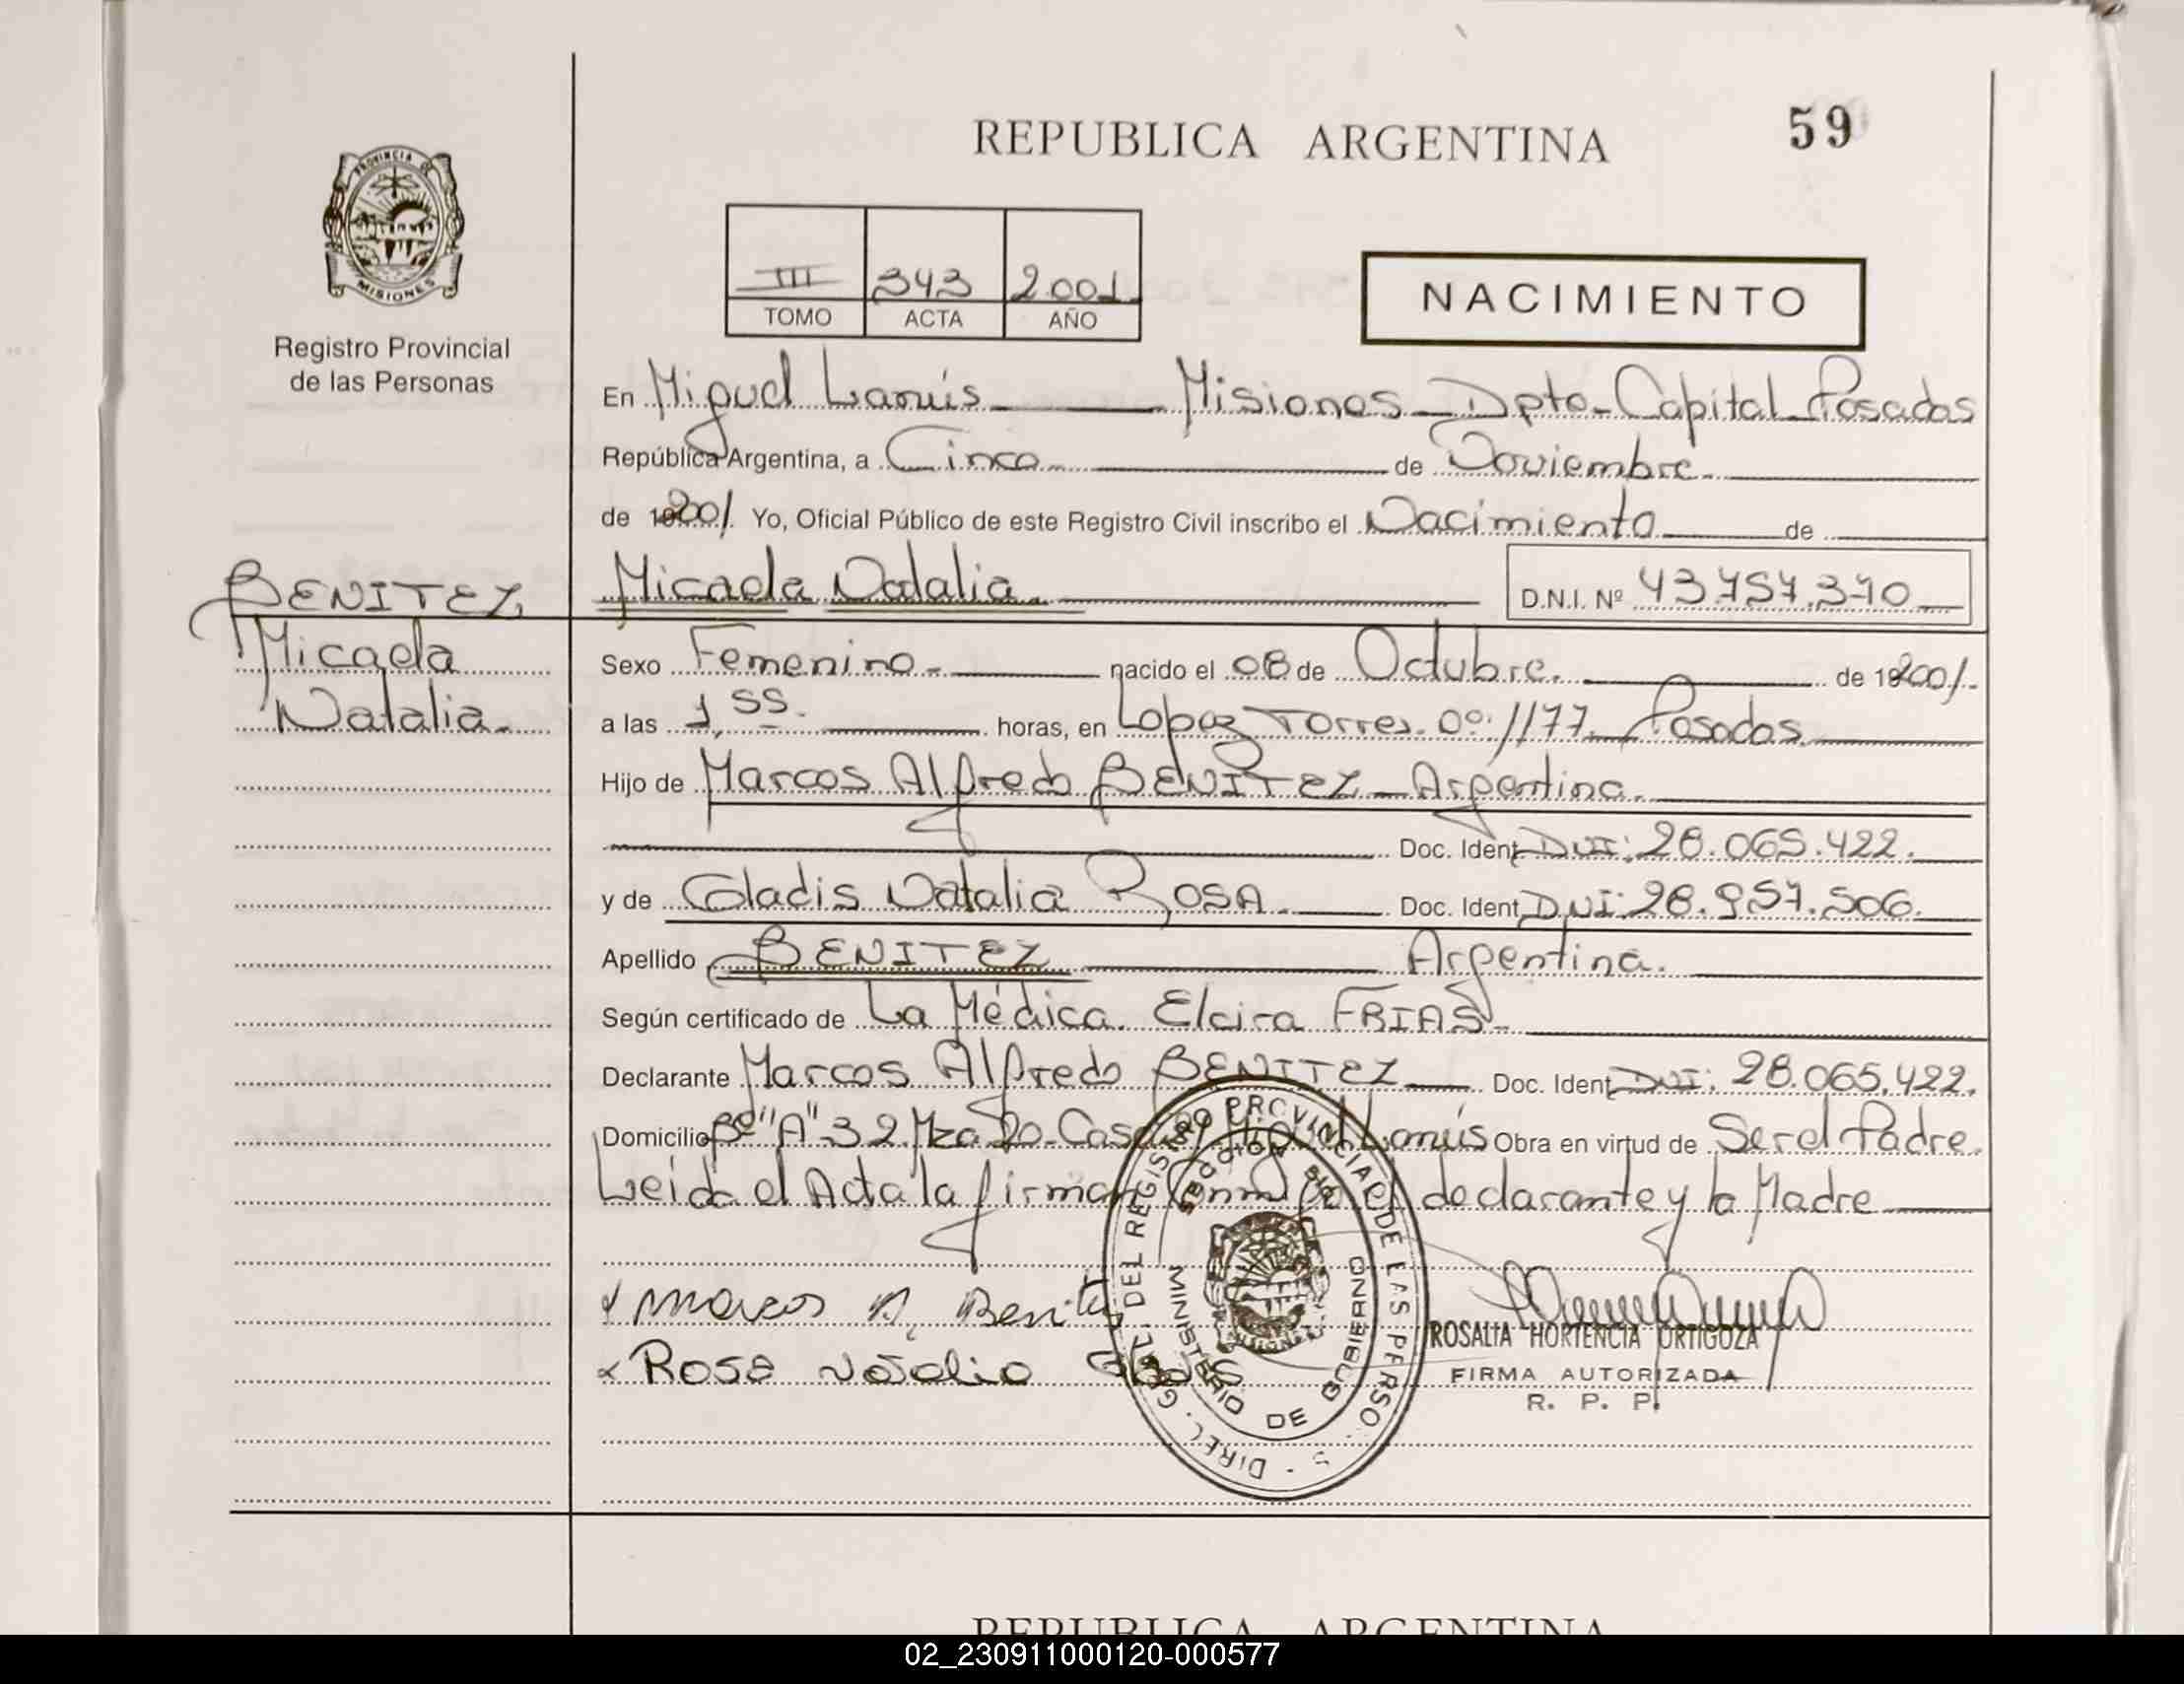 REPUBLICA ARGENTINA
59
PROVINCIA DE
MISIONES
Registro Provincial
de las Personas
III 343 2.001
TOMO ACTA AÑO
NACIMIENTO
En Miguel Lanús Misiones Dpto-Capital Posadas
República Argentina, a Cinco de Noviembre
de 2001. Yo, Oficial Público de este Registro Civil inscribo el Nacimiento de
BENITEZ
Micaela
Natalia.
Micaela Natalia. D.N.I. Nº 43.757.370
Sexo Femenino. nacido el 08 de Octubre. de 2001.
a las 1,55. horas, en Lopez Torres. Nº: 1177. Posadas.
Hijo de Marcos Alfredo BENITEZ Argentino.
Doc. Ident DNI: 28.065.422.
y de Gladis Natalia ROSA. Doc. Ident DNI: 28.957.506.
Apellido BENITEZ Argentina.
Según certificado de La Médica. Elcira FRIAS-
Declarante Marcos Alfredo BENITEZ Doc. Ident DNI: 28.065.422.
Domicilio Bº "A" 32. Mza 20. Casa Miguel Lanús Obra en virtud de Ser el Padre.
Leida el Acta la firman el declarante y la Madre
Marcos A. Benitez
Rosa Natalia Gladis
ROSALIA HORTENCIA ORTIGOZA
FIRMA AUTORIZADA
R. P. P.
DIREC. GRAL. DEL REGISTRO PROVINCIAL DE LAS PERSO
MINISTERIO DE GOBIERNO
REPUBLICA ARGENTINA
02_230911000120-000577